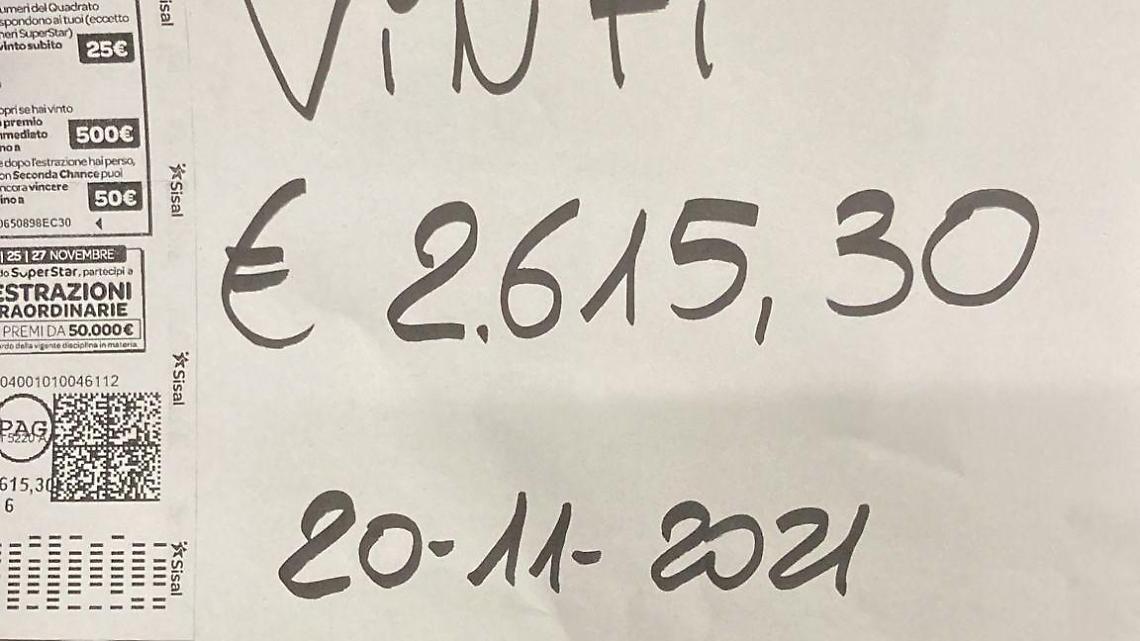 umeri del Quadrato
spondono ai tuoi (eccetto
neri SuperStar)
vinto subito
25€
opri se hai vinto
premio
mmediato
no a
500€
e dopo l'estrazione hai perso,
on Seconda Chance puoi
ncora vincere
ino a
50€
0650898EC30
| 25 | 27 NOVEMBRE
do SuperStar, partecipi a
ESTRAZIONI
RAORDINARIE
PREMI DA 50.000€
ordo della vigente disciplina in materia.
04001010046112
PAG
615,30
6
isal
Sisal
Sisal
Sisal
ViNTi
€ 2.615,30
20-11-2021